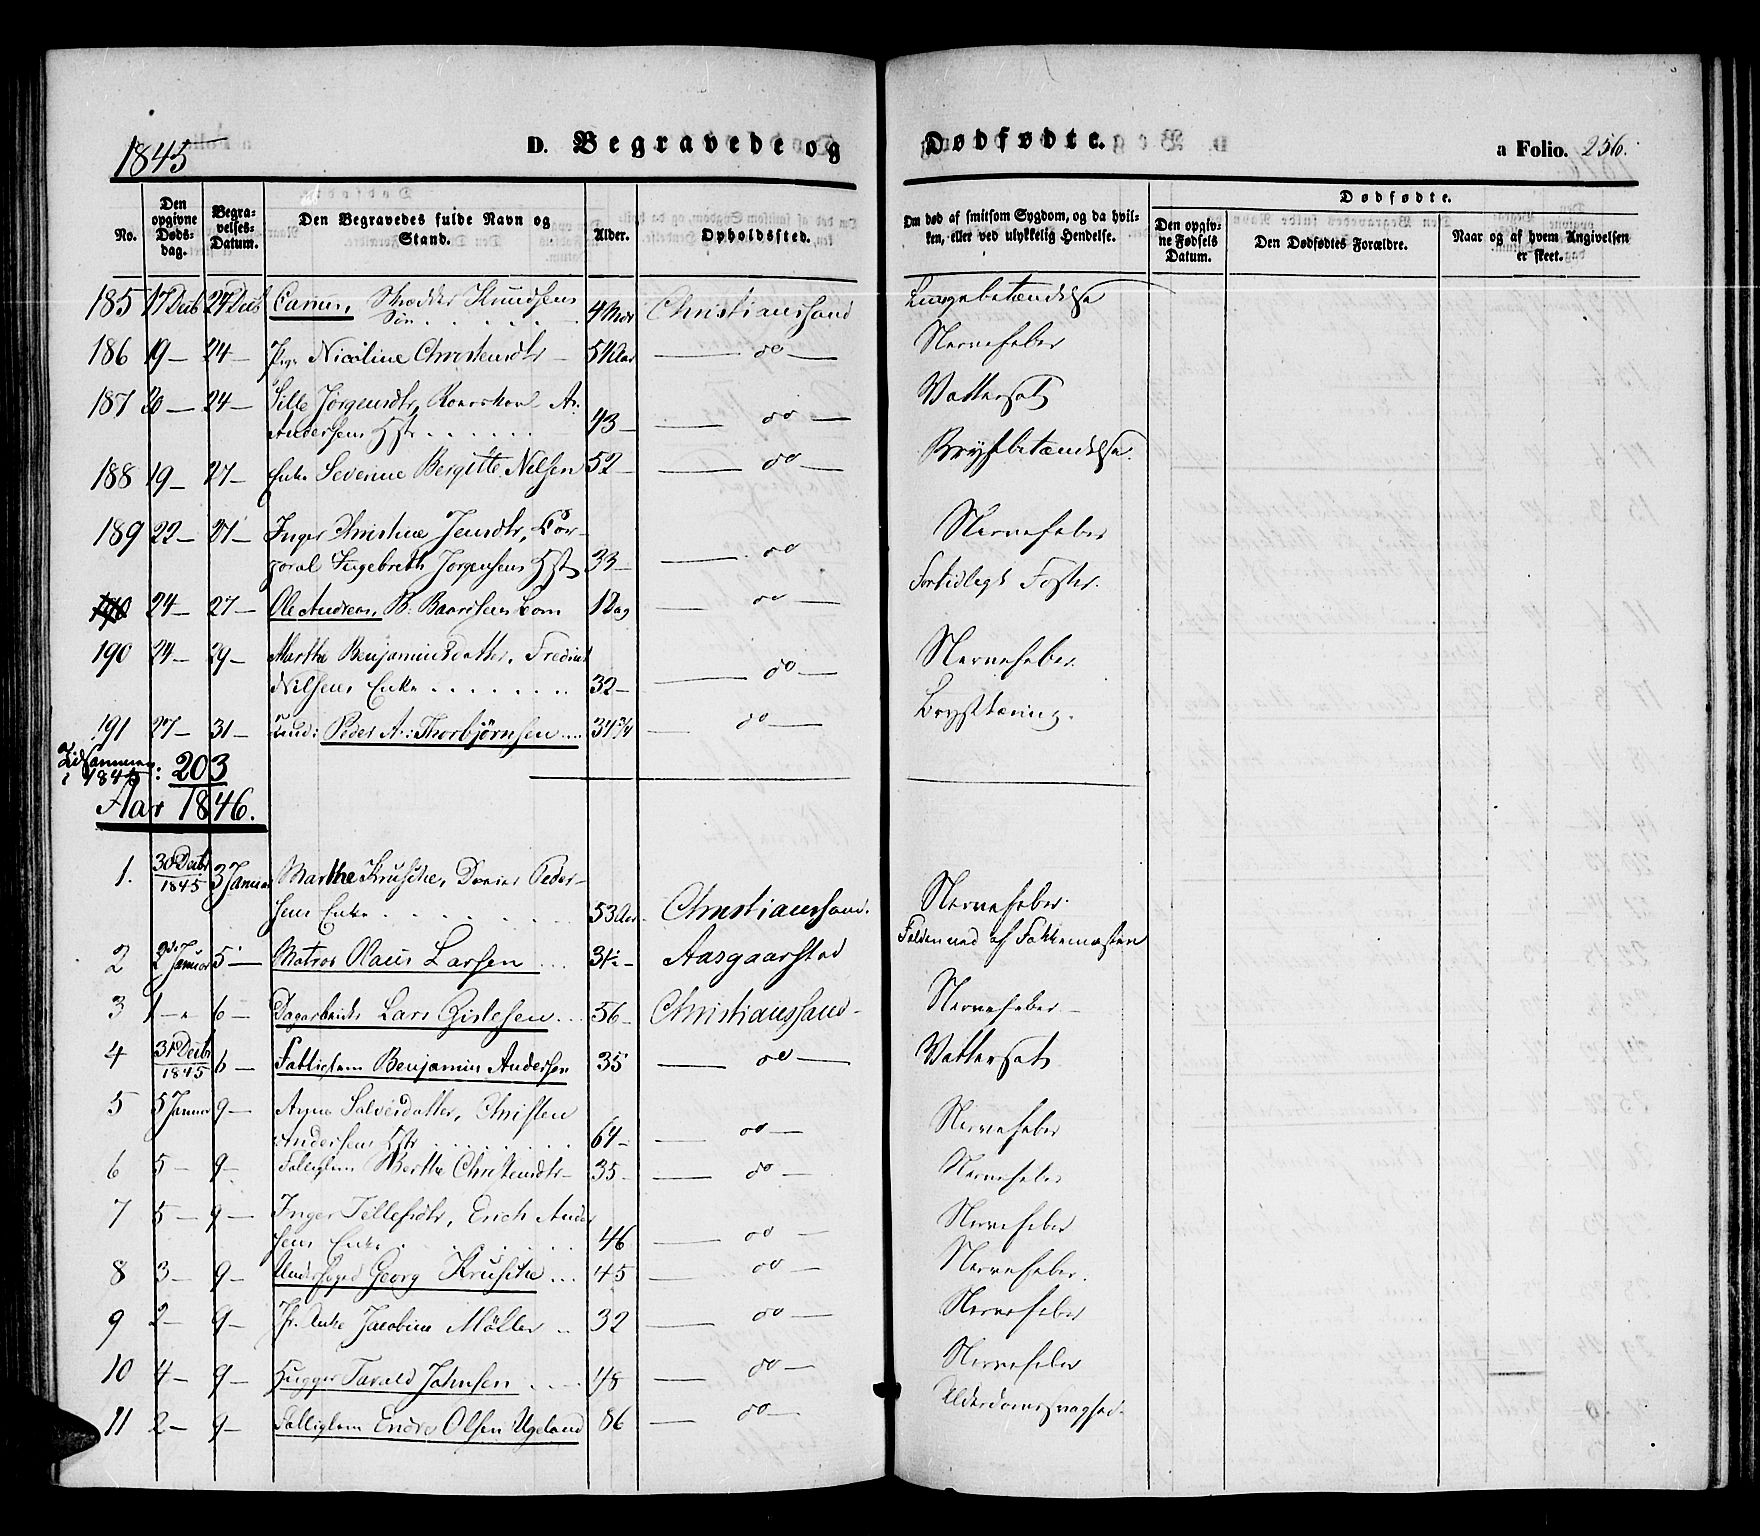 1845
D. Begravede og Dødfødte.
a Folio. 256.
No. Den opgivne Dødsdag. Begravelses-Datum. Den Begravedes fulde Navn og Stand. Alder. Opholdssted. Om død af smitsom Sygdom, og da hvilken, eller ved ulykkelig Hendelse. Dødfødte. Den opgivne Fødsels Datum. Den Dødfødtes Forældre. Naar og af hvem Angivelsen er skeet.
185 17 Decb 24 Decb Knudsens
Søn 4 Mdr Christianssand Lungebetændelse
186 19 — 24 — Nicoline Christensdtr — 54 Aar — do — Nervefeber
187 20 — 24 — Sille Jørgensdtr, A.
Andersens Hstr 43 — do — Vattersot
188 19 — 27 — Enke Severine Bergitte Nilsen 52 — do — Brystbetændelse.
189 22 — 27 — Inger Christine Jensdtr, Cor-
poral Engebreth Jørgensens Hst 33 — do — Nervefeber
190 24 — 27 — Ole Andreas, B. Baardsens 1 Dag — do — Fortidlegt Foster.
190 24 — 29 — Marthe Benjaminsdatter,
Nilsens Enke 32 — do — Nervefeber.
191 27 — 31 — Peder A: Thorbjørnsen 34 3/4 do — Brysttæring.
Tilsammen
i 1845: 203
Aar 1846.
1. 30 Decbr 1845 3 Januar Marthe Krusche, Peder-
sens Enke 53 Aar. Christianssand. Nervefeber.
2 2 Januar 5 — Matros Olaus Larsen 31 1/2 — Aasgaarstad Falden ned af Fokkemasten
3 1 — 6 — Dagarbeider Lars Gislesen 56 — Christianssand — Nervefeber —
4 31 Decb 1845 6 — Fattiglem Benjamin Andersen 35 — do — Vattersot
5 5 Januar 9 — Anne Salvesdatter, Christen
Andersens Hstr 64 — do — Nervefeber
6 5 — 9 — Fattiglem Berthe Christensdtr — 35 — do — Nervefeber
7 5 — 9 — Inger Tellefsdtr, Erich Ander
sens Enke 46 — do — Nervefeber
8 3 — 9 — Underfoged Georg Krusche 45 — do — Nervefeber.
9 2 — 9 — Jfr. Jacobine Møller 32 — do — Nervefeber
10 4 — 9 — Hugger Tarald Johnsen 48 — do — Nervefeber
11 2 — 9 — Fattiglem Endre Olsen Ugeland 86 — do — Alderdomssvaghed.